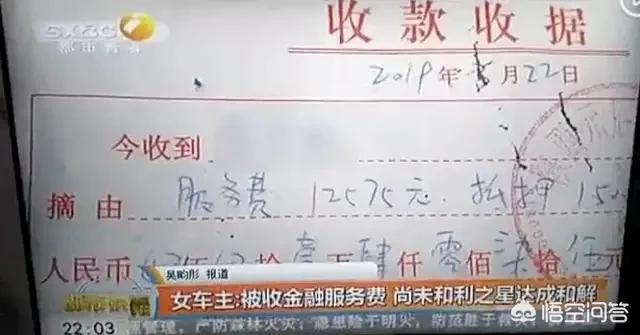 SXBC
都市青春
收款收据
2019年 月22日
今收到
摘由 服务费 12575元. 抵押 150
人民币 拾壹万肆仟零佰柒拾伍元
吴昀彤 报道
女车主:被收金融服务费 尚未和利之星达成和解
22:03 管理,严防森林火灾;隐患险于明火,防范胜于
悟空问答